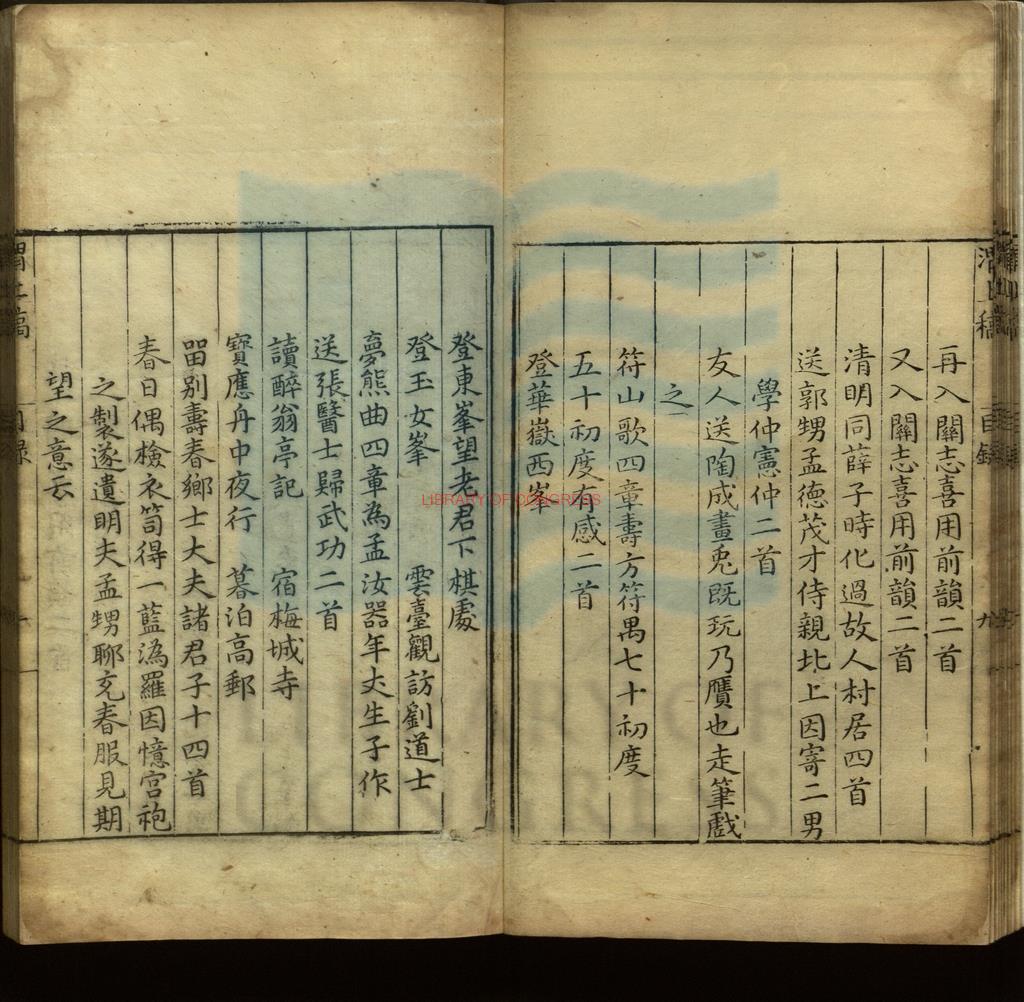 再入關志喜用前韻二首
又入關志喜用前韻二首
清明同薛子時化過故人村居四首
送郭甥孟德茂才侍親北上因寄二男
學仲憲仲二首
友人送陶成畫兎既玩乃贗也走筆戲
之
符山歌四章壽方符禺七十初度
五十初度有感二首
登華嶽西峯
登東峯望老君下棋處
登玉女峯 雲臺觀訪劉道士
夢熊曲四章為孟汝器年丈生子作
送張醫士歸武功二首
讀醉翁亭記 宿梅城寺
寶應舟中夜行 暮泊高郵
留別壽春鄉士大夫諸君子十四首
春日偶檢衣笥得一藍溈羅因憶宮袍
之製遂遺明夫孟甥聊充春服見期
望之意云
LIBRARY OF CONGRESS